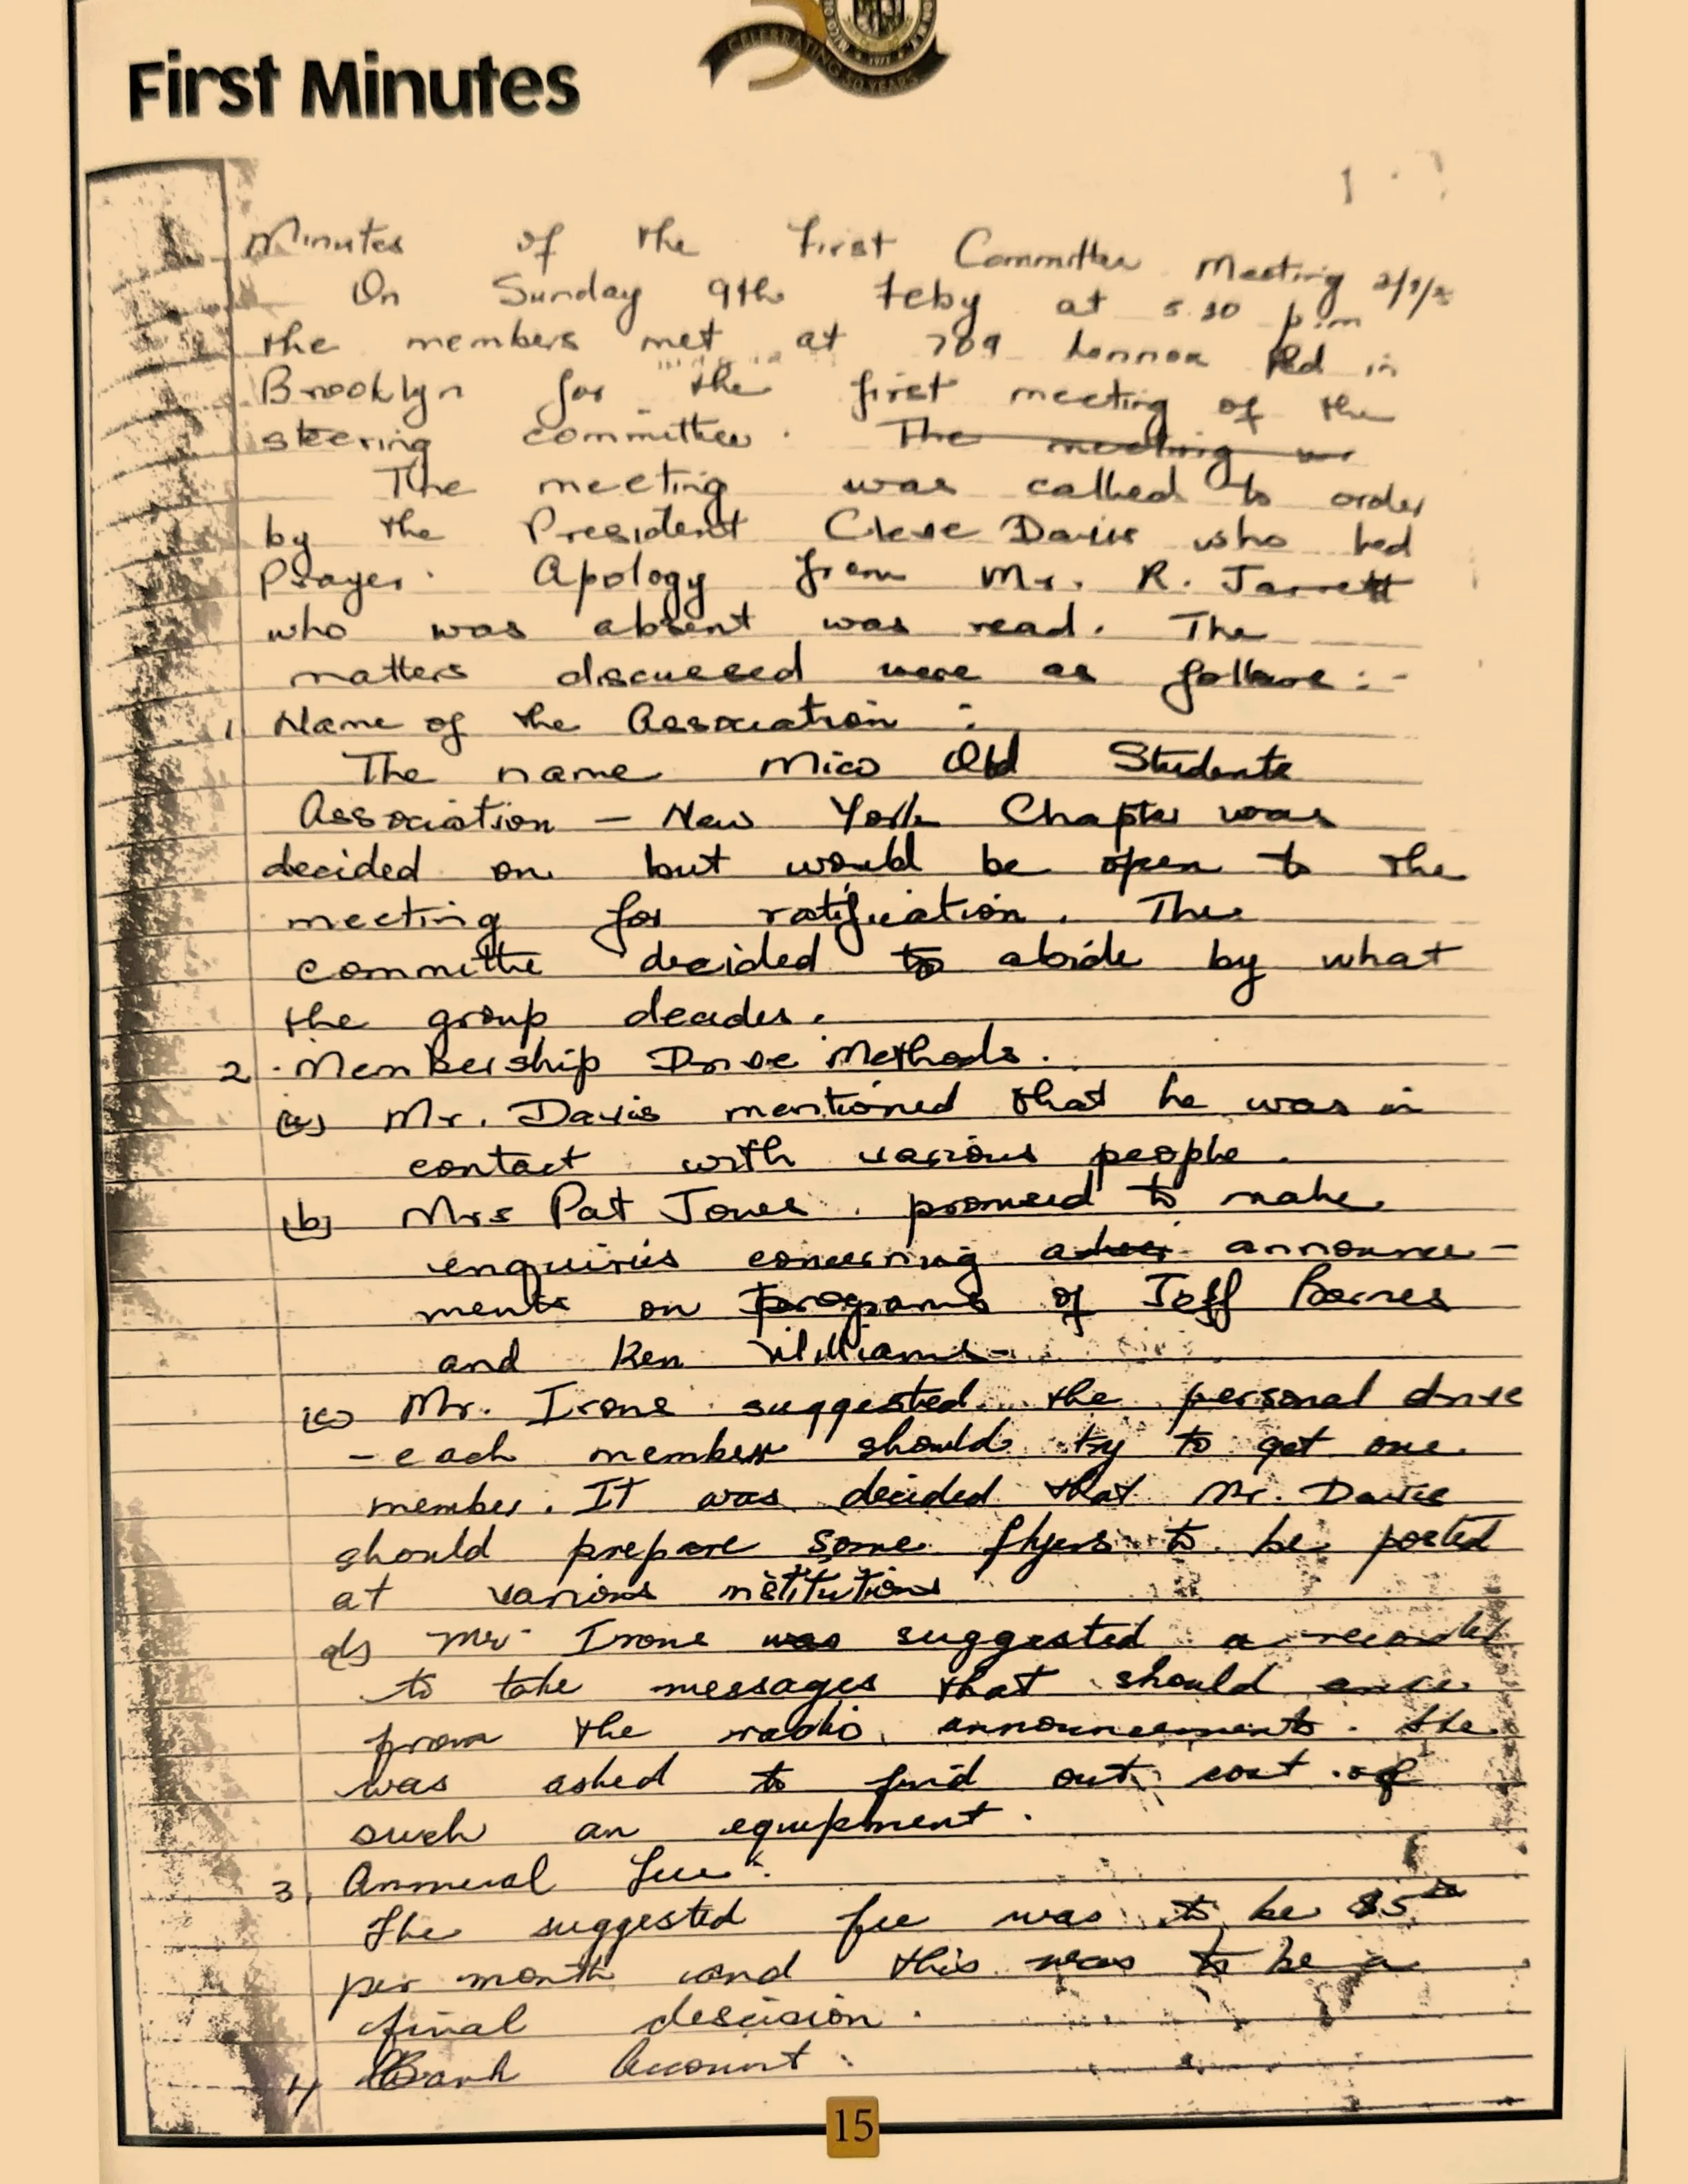 CELEBRATING 50 YEARS
First Minutes
Minutes of the First Committee Meeting
On Sunday 9th Feby at 5.30 p.m
the members met at 789 Lennox Rd in
Brooklyn for the first meeting of the
steering committee. The meeting
The meeting was called to order
by the President Cleve Davis who led
Prayer. Apology from Mr. R. Jarrett
who was absent was read. The
matters discussed were as follows:-
1. Name of the Association :
The name Mico Old Students
Association - New York Chapter was
decided on but would be open to the
meeting for ratification. The
committee decided to abide by what
the group decides.
2. Membership Drive Methods.
(a) Mr. Davis mentioned that he was in
contact with various people.
(b) Mrs Pat Jones promised to make
enquiries concerning announce-
ments on programs of Jeff Barnes
and Ken Williams
(c) Mr. Irons suggested the personal drive
- each member should try to get one
member. It was decided that Mr. Davis
should prepare some flyers to be posted
at various institutions
d) Mr Irons was suggested a recorder
to take messages that should
from the radio announcements. He
was asked to find out cost of
such an equipment.
3. Annual fee :
The suggested fee was to be $5
per month and this was to be a
final descision.
4 Bank Account :
15